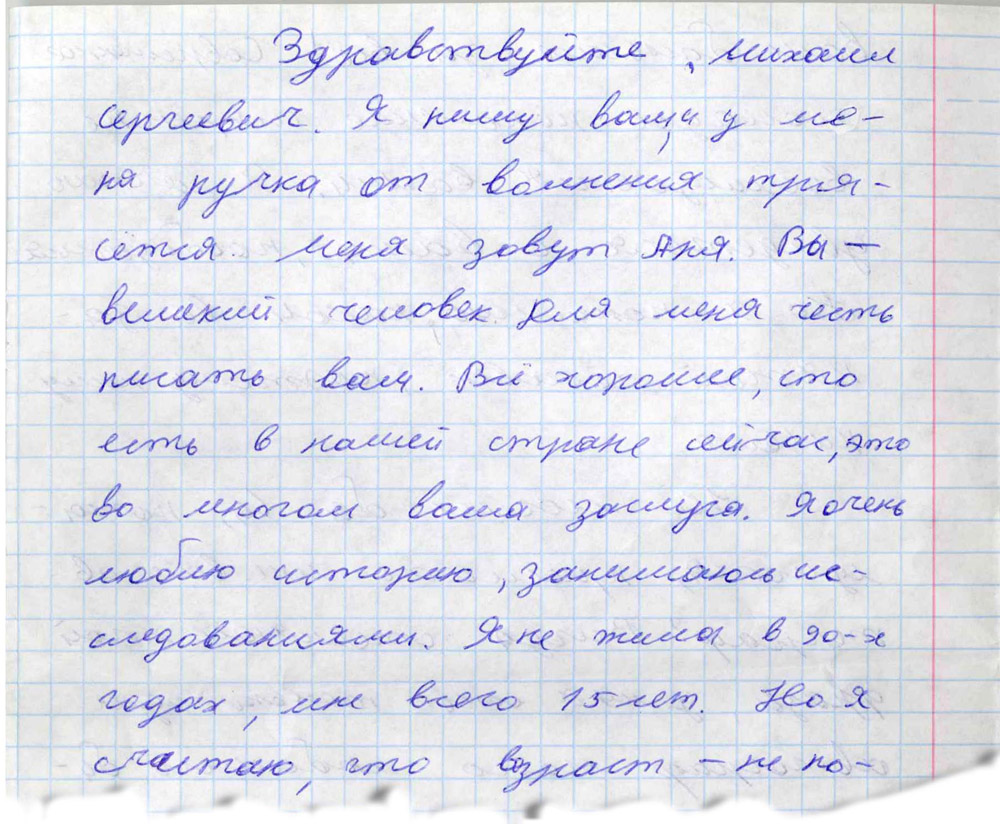 Здравствуйте, Михаил
Сергеевич. Я пишу вам, и у ме-
ня ручка от волнения тря-
сётся. Меня зовут Аня. Вы –
великий человек. Для меня честь
писать вам. Всё хорошее, что
есть в нашей стране сейчас, это
во многом ваша заслуга. Я очень
люблю историю, занимаюсь ис-
следованиями. Я не жила в 90-х
годах, мне всего 15 лет. Но я
считаю, что возраст – не по-